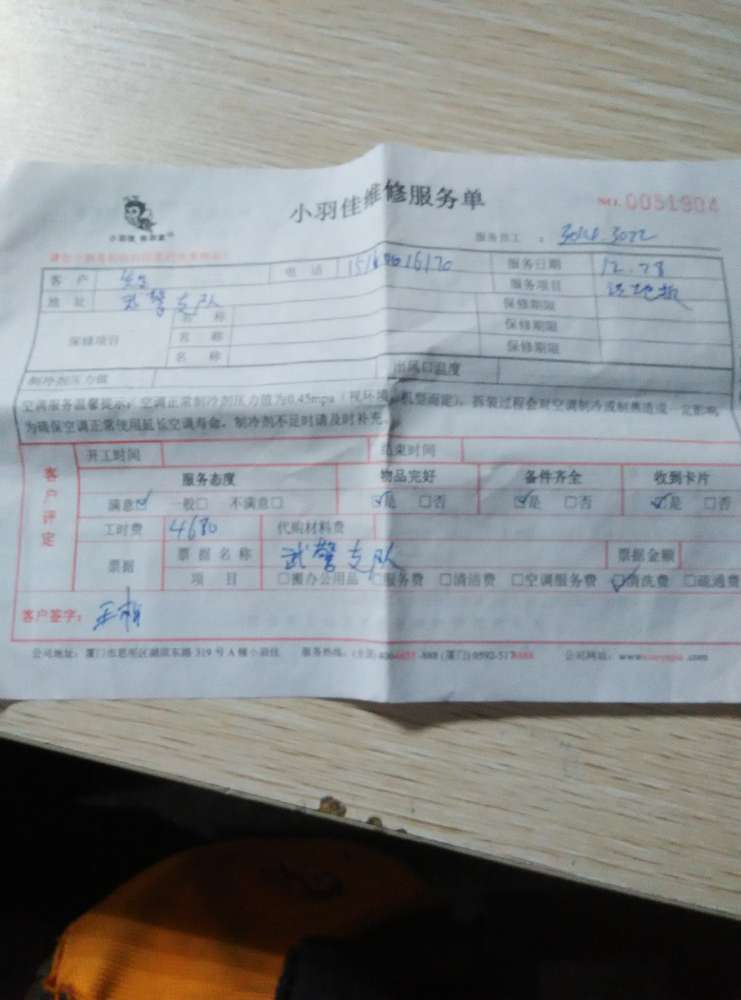 小羽佳维修服务单
NO. 0051904
小羽佳 你的家
服务员工 : 3024.3022
客户 电话 服务日期 12.28
地址 武警支队 服务项目 洗地板
保修项目 名称 保修期限
名称 保修期限
名称 保修期限
制冷剂压力值 出风口温度
空调服务温馨提示:空调正常制冷剂压力值为0.45mpa(视环境、机型而定),拆装过程会对空调制冷或制热造成一定影响
为确保空调正常使用延长空调寿命,制冷剂不足时请及时补充。
客户评定
开工时间 结束时间
服务态度 物品完好 备件齐全 收到卡片
满意☑ 一般□ 不满意□ ☑是 □否 ☑是 □否 ☑是 □否
工时费 4680 代购材料费
票据 票据名称 武警支队 票据金额
项目 □搬办公用品 □服务费 □清洁费 □空调服务费 ☑清洗费 □疏通费
客户签字:
公司地址:厦门市思明区湖滨东路 319 号 A 幢小羽佳 服务热线: -888 (厦门) 0592-5178888 公司网站: .com